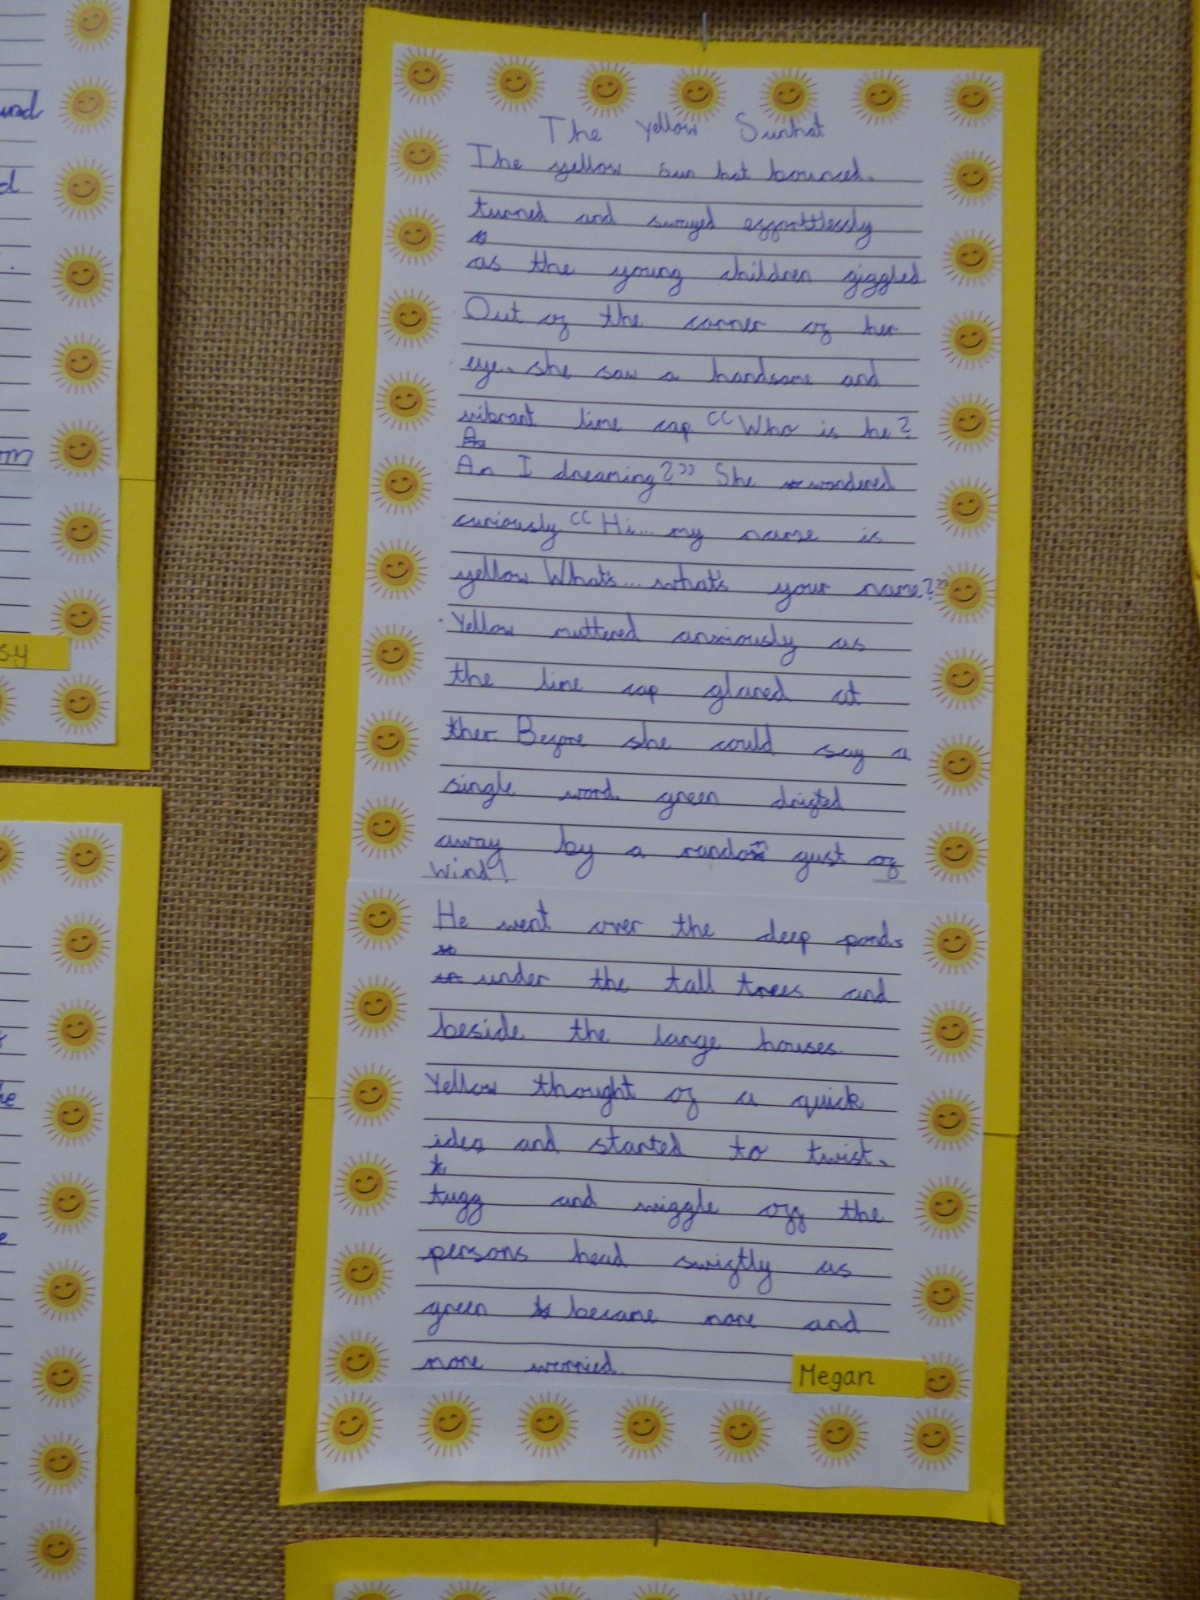 The Yellow Sunhat
The yellow sun hat bounced,
turned and swayed efforttlessly
as the young children giggled
Out of the corner of her
eye, she saw a handsome and
vibrant lime cap "Who is he?
Am I dreaming?" She wondered
curiously "Hi... my name is
yellow What's... what's your name?"
Yellow muttered anxiously as
the lime cap glared at
her. Before she could say a
single word, green drifted
away by a random gust of
wind!
He went over the deep ponds
under the tall trees and
beside the large houses.
Yellow thought of a quick
idea and started to twist,
tugg and wiggle off the
persons head swiftly as
green became more and
more worried.
Megan
sy